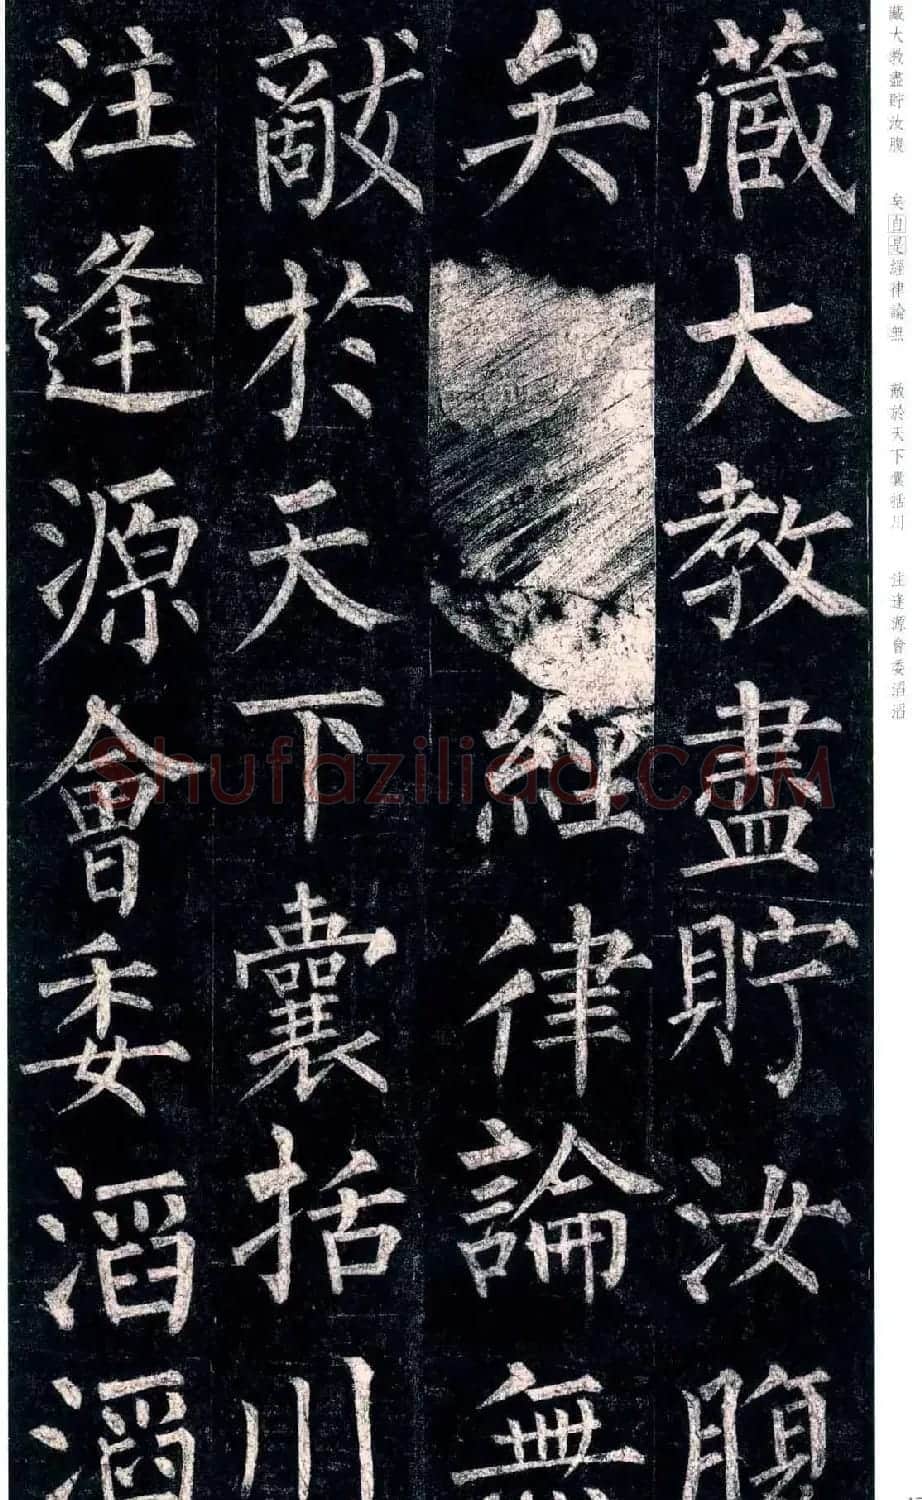 藏大教盡貯汝腹
矣經律論無
敵於天下囊括川
注逢源會委滔滔
藏大教盡貯汝腹 矣自是經律論無 敵於天下囊括川 注逢源會委滔滔
Shufaziliao.COM